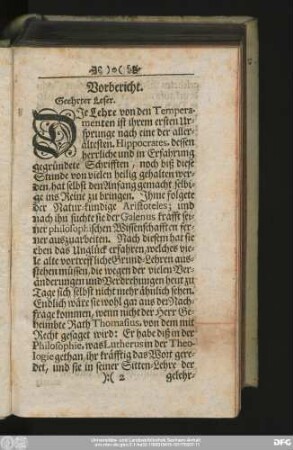 Vorbericht.
Geehrter Leser.
DIe Lehre von den Tempera-
menten ist ihrem ersten Ur-
sprunge nach eine der aller-
ältesten. Hippocrates, dessen
herrliche und in Erfahrung
gegründete Schrifften, noch biß diese
Stunde von vielen heilig gehalten wer-
den, hat selbst den Anfang gemacht selbi-
ge ins Reine zu bringen. Ihme folgete
der Natur-kündige Aristoteles; und
nach ihn suchte sie der Galenus krafft sei-
ner philosophischen Wissenschafften fer-
ner auszuarbeiten. Nach diesem hat sie
eben das Unglück erfahren, welches vie-
le alte vortreffliche Grund-Lehren aus-
stehen müssen, die wegen der vielen Ver-
änderungen und Verdrehungen heut zu
Tage sich selbst nicht mehr ähnlich sehen.
Endlich wäre sie wohl gar aus der Nach-
frage kommen, wenn nicht der Herr Ge-
heimbte Rath Thomasius, von dem mit
Recht gesaget wird: Er habe diß in der
Philosophie, was Lutherus in der Theo-
logie gethan, ihr kräfftig das Wort gere-
det, und sie in seiner Sitten-Lehre der
)( 2 gelehr-